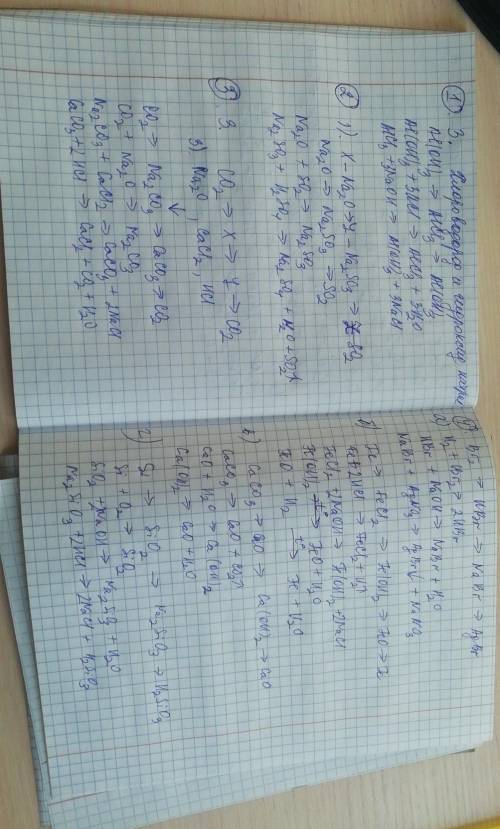 ① 3.
Al(OH)3 → AlCl3 → Al(OH)3
Al(OH)3 + 3HCl → AlCl3 + 3H2O
AlCl3 + 3NaOH → Al(OH)3 + 3NaCl
② 1) X - Na2O → Y - Na2SO3 → SO2
Na2O → Na2SO3 → SO2
Na2O + SO2 → Na2SO3
Na2SO3 + H2SO4 → Na2SO4 + H2O + SO2↑
③ 3. CO2 → X → Y → CO2
5) Na2O, CaCl2, HCl
↓
CO2 → Na2CO3 → CaCO3 → CO2
CO2 + Na2O → Na2CO3
Na2CO3 + CaCl2 → CaCO3 + 2NaCl
CaCO3 + 2HCl → CaCl2 + CO2 + H2O
Br2 → HBr → NaBr → AgBr
H2 + Br2 → 2HBr
HBr + NaOH → NaBr + H2O
NaBr + AgNO3 → AgBr↓ + NaNO3
б) Fe → FeCl2 → Fe(OH)2 → FeO → Fe
Fe + 2HCl → FeCl2 + H2↑
FeCl2 + 2NaOH → Fe(OH)2 + 2NaCl
Fe(OH)2 t° → FeO + H2O
FeO + H2 t° → Fe + H2O
в) CaCO3 → CaO → Ca(OH)2 → CaO
CaCO3 → CaO + CO2↑
CaO + H2O → Ca(OH)2
Ca(OH)2 → CaO + H2O
г) Si → SiO2 → Na2SiO3 → H2SiO3
Si + O2 → SiO2
SiO2 + 2NaOH → Na2SiO3 + H2O
Na2SiO3 + 2HCl → 2NaCl + H2SiO3